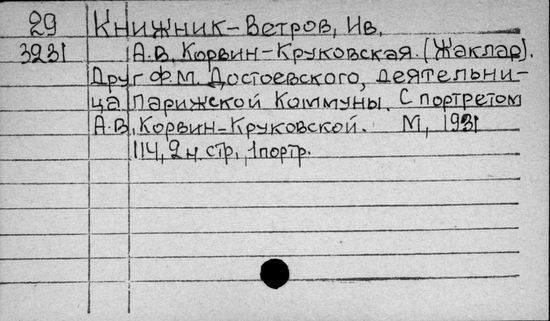 29 Книжник-Ветров, Ив.
3231 А.В. Корвин-Круковская. (Жаклар).
Друг Ф.М. Достоевского, деятельни-
ца Парижской Коммуны. С портретом
А.В. Корвин-Круковской. М, 1931
114, 2 н. стр., 1 портр.